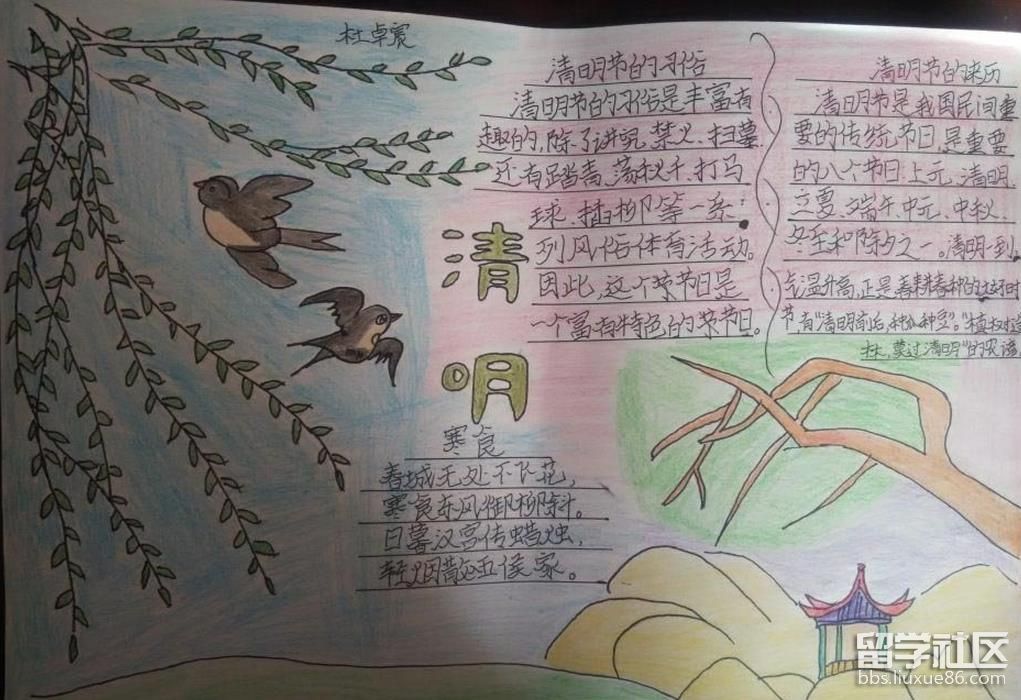 杜卓宸
清明节的习俗
清明节的习俗是丰富有
趣的,除了讲究禁火、扫墓
还有踏青、荡秋千、打马
球、插柳等一系
列风俗体育活动。
因此,这个节日是
一个富有特色的节日。
清明节的来历
清明节是我国民间重
要的传统节日,是重要
的八个节日上元、清明、
立夏、端午、中元、中秋、
冬至和除夕之一。清明一到
气温升高,正是春耕春种的大好时
节,有“清明前后,种瓜种豆”。“植树造
林,莫过清明”的农谚
清
明
寒食
春城无处不飞花,
寒食东风御柳斜。
日暮汉宫传蜡烛,
轻烟散五侯家。
留学社区
bbs.liuxue86.com